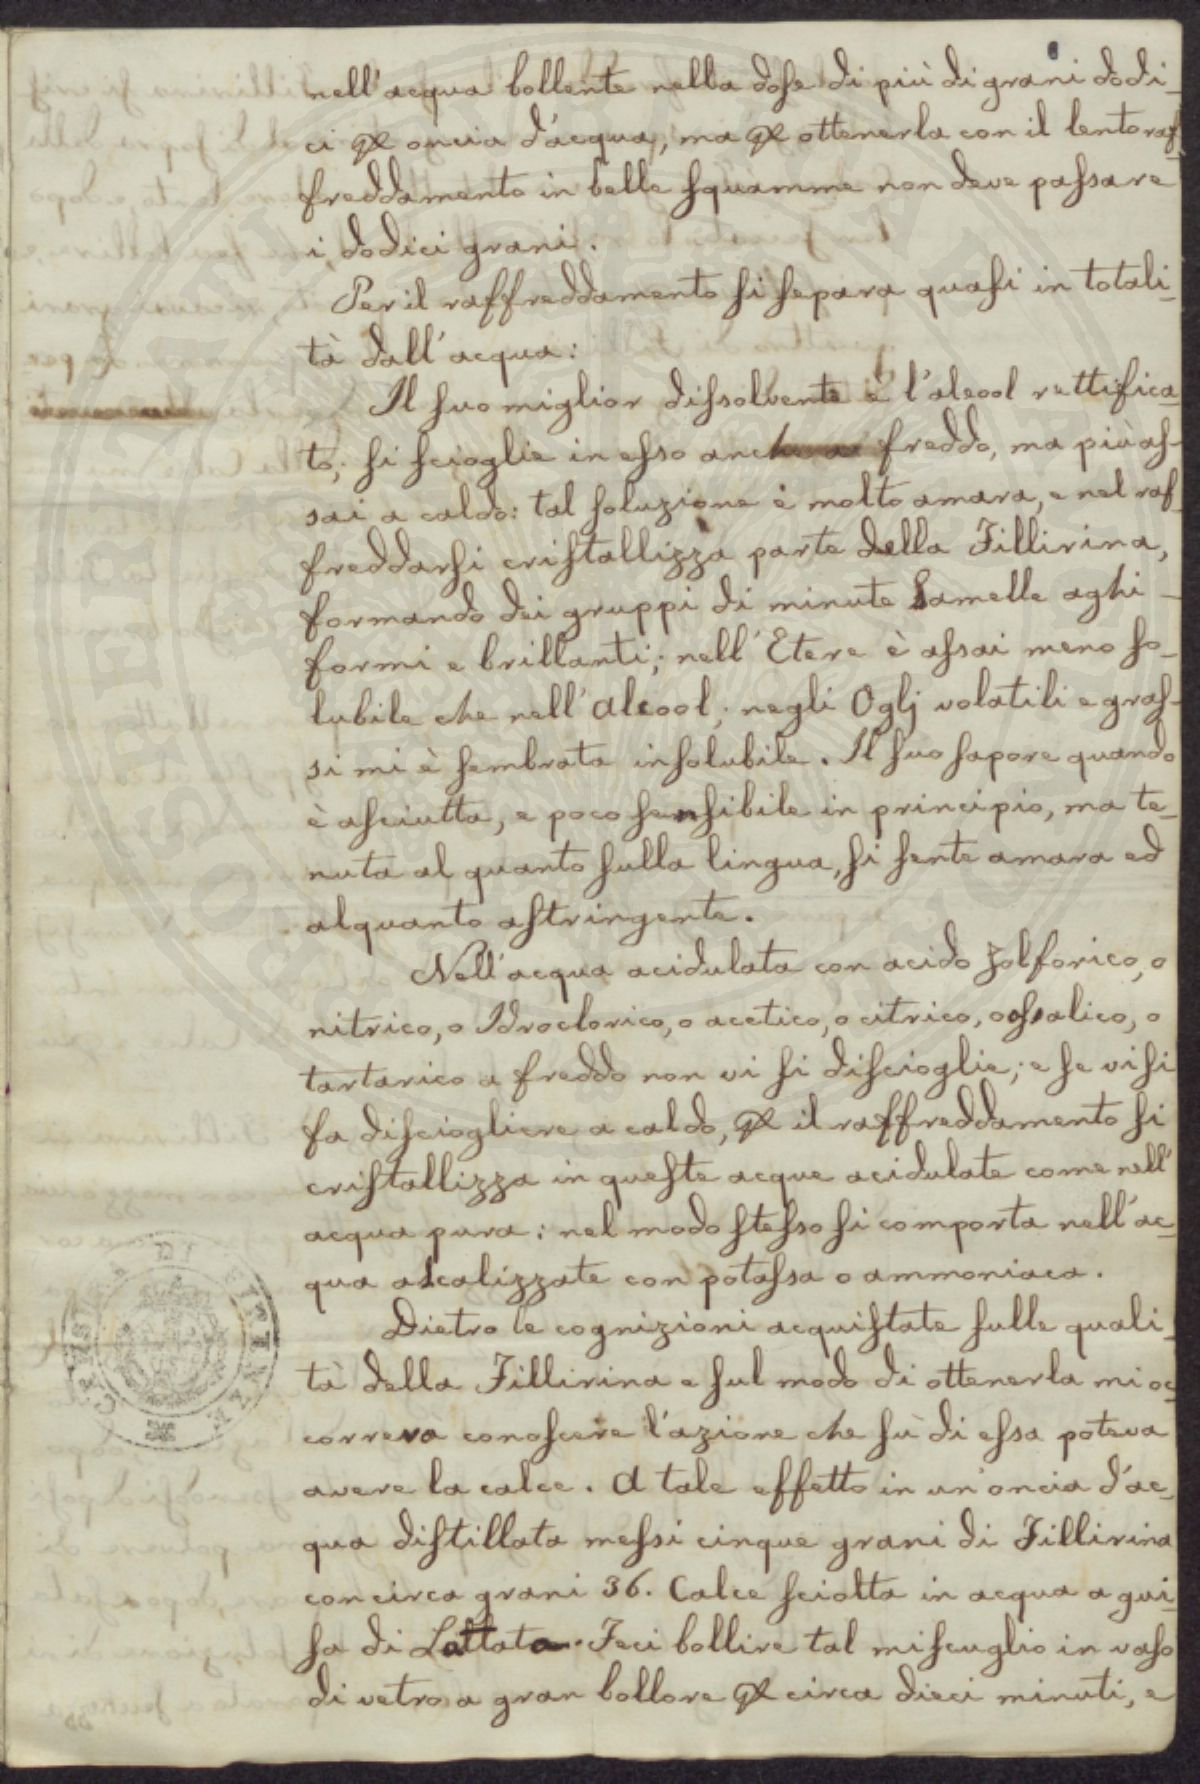 nell'acqua bollente nella dose di più di grani dodi_
ci ꝑ oncia d'acqua, ma ꝑ ottenerla con il lento raf_
freddamento in belle squamme non deve passare
i dodici grani.
Per il raffreddamento si separa quasi in totali_
tà dall'acqua:
Il suo miglior dissolvente è l'alcool rettifica_
to; si scioglie in esso anche a freddo, ma più as_
sai a caldo: tal soluzione è molto amara, e nel raf_
freddarsi cristallizza parte della Fillirina,
formando dei gruppi di minute Lamelle aghi_
formi e brillanti; nell'Etere è assai meno so_
lubile che nell'alcool; negli Oglj volatili e gras_
si mi è sembrata insolubile. Il suo sapore quando
è asciutta, e poco sensibile in principio, ma te_
nuta al quanto sulla lingua, si sente amara ed
alquanto astringente.
Nell'acqua acidulata con acido zolforico, o
nitrico, o Idroclorico, o acetico, o citrico, o ossalico, o
tartarico a freddo non vi si discioglie; e se vi si
fa disciogliere a caldo, ꝑ il raffreddamento si
cristallizza in queste acque acidulate come nell'
acqua pura: nel modo stesso si comporta nell'ac_
qua alcalizzate con potassa o ammoniaca.
Dietro le cognizioni acquistate sulle quali_
tà della Fillirina e sul modo di ottenerla mi oc_
correva conoscere l'azione che sù di essa poteva
avere la calce. A tale effetto in un'oncia d'ac_
qua distillata messi cinque grani di Fillirina
con circa grani 36. Calce sciolta in acqua a gui_
sa di Lattata. Feci bollire tal miscuglio in vaso
di vetro a gran bollore ꝑ circa dieci minuti, e